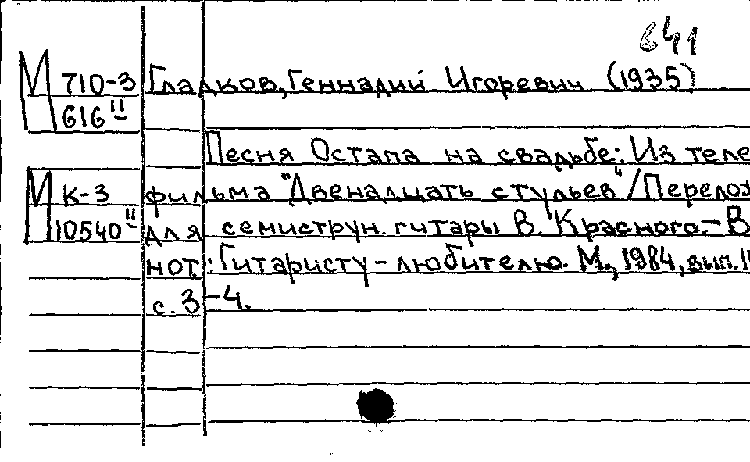 641
М 710-3 Гладков, Геннадий Игоревич (1935)
616 II
Песня Остапа на свадьбе: Из теле
М К-3 фильма "Двенадцать стульев" / Перелож
10540 II для семиструн. гитары В. Красного. – В
нот.: Гитаристу – любителю. М., 1984, вып. 1
с. 3-4.